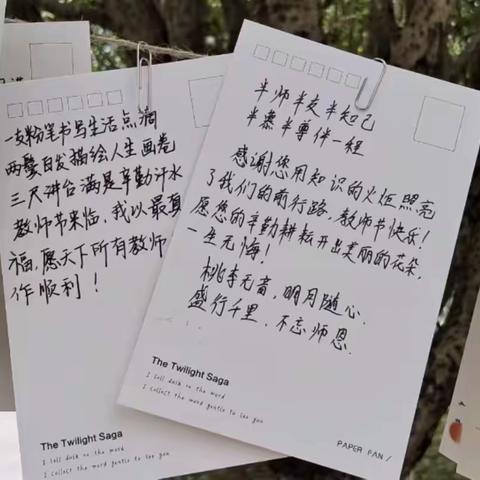 一支粉笔书写生活点滴
两鬓白发描绘人生画卷
三尺讲台满是辛勤汗水
教师节来临,我以最真
福,愿天下所有教师
作顺利!
The Twilight Saga
I tell dusk to the word
I collect the word gentle to see you
半师半友半知己
半慕半尊伴一程
感谢您用知识的火炬照亮
了我们的前行路,教师节快乐!
愿您的辛勤耕耘开出美丽的花朵,
一生无悔!
桃李无言,明月随心.
盛行千里,不忘师恩.
The Twilight Saga
I tell dusk to the word
I collect the word gentle to see you
PAPER FAN /